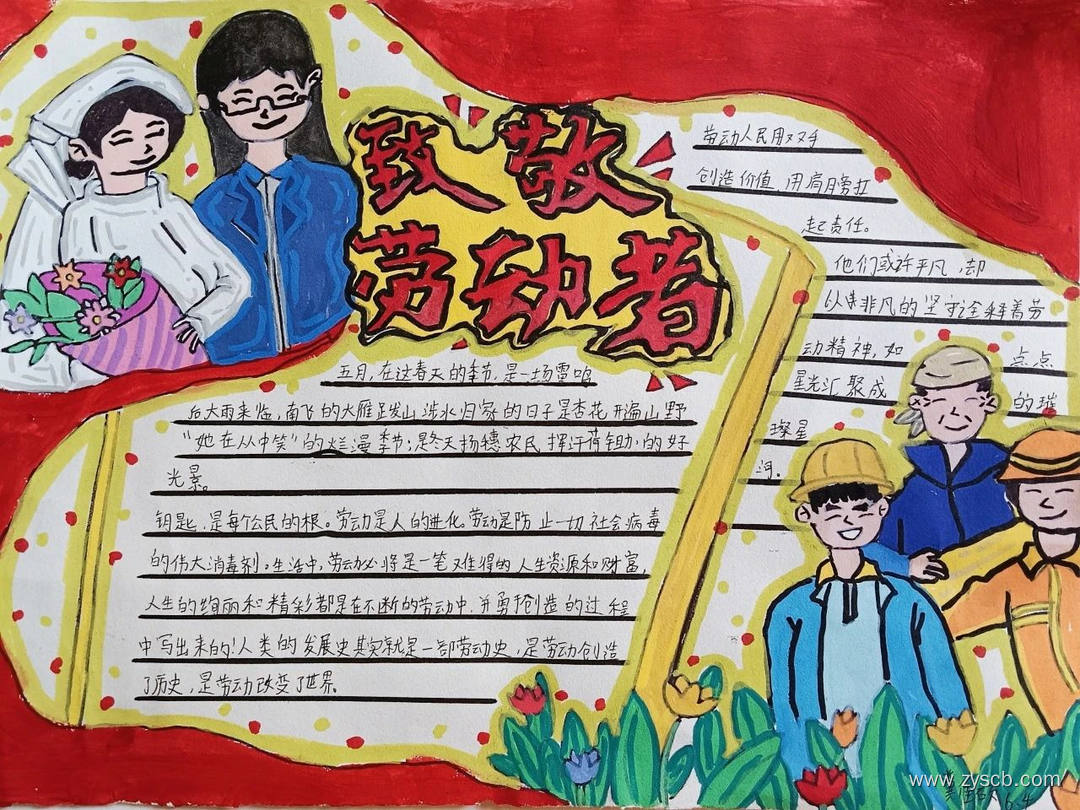 致敬
劳动者
五月,在这春天的季节,是一场雷鸣
后大雨来临,南飞的大雁跋山涉水归家的日子是杏花开遍山野
“她在从中笑”的烂漫季节;是冬天扬穗农民挥汗荷锄的好
光景。
钥匙,是每个公民的根。劳动是人的进化。劳动是防止一切社会病毒
的伟大消毒剂。生活中,劳动必将是一笔难得的人生资源和财富,
人生的绚丽和精彩都是在不断的劳动中,并勇于创造的过程
中写出来的!人类的发展史其实就是一部劳动史,是劳动创造
了历史,是劳动改变了世界。
劳动人民用双手
创造价值,用肩膀扛
起责任。
他们或许平凡,却
以非凡的坚守诠释着劳
动精神,如点点
星光汇聚成的璀
璨星
河。
www.zyscb.com